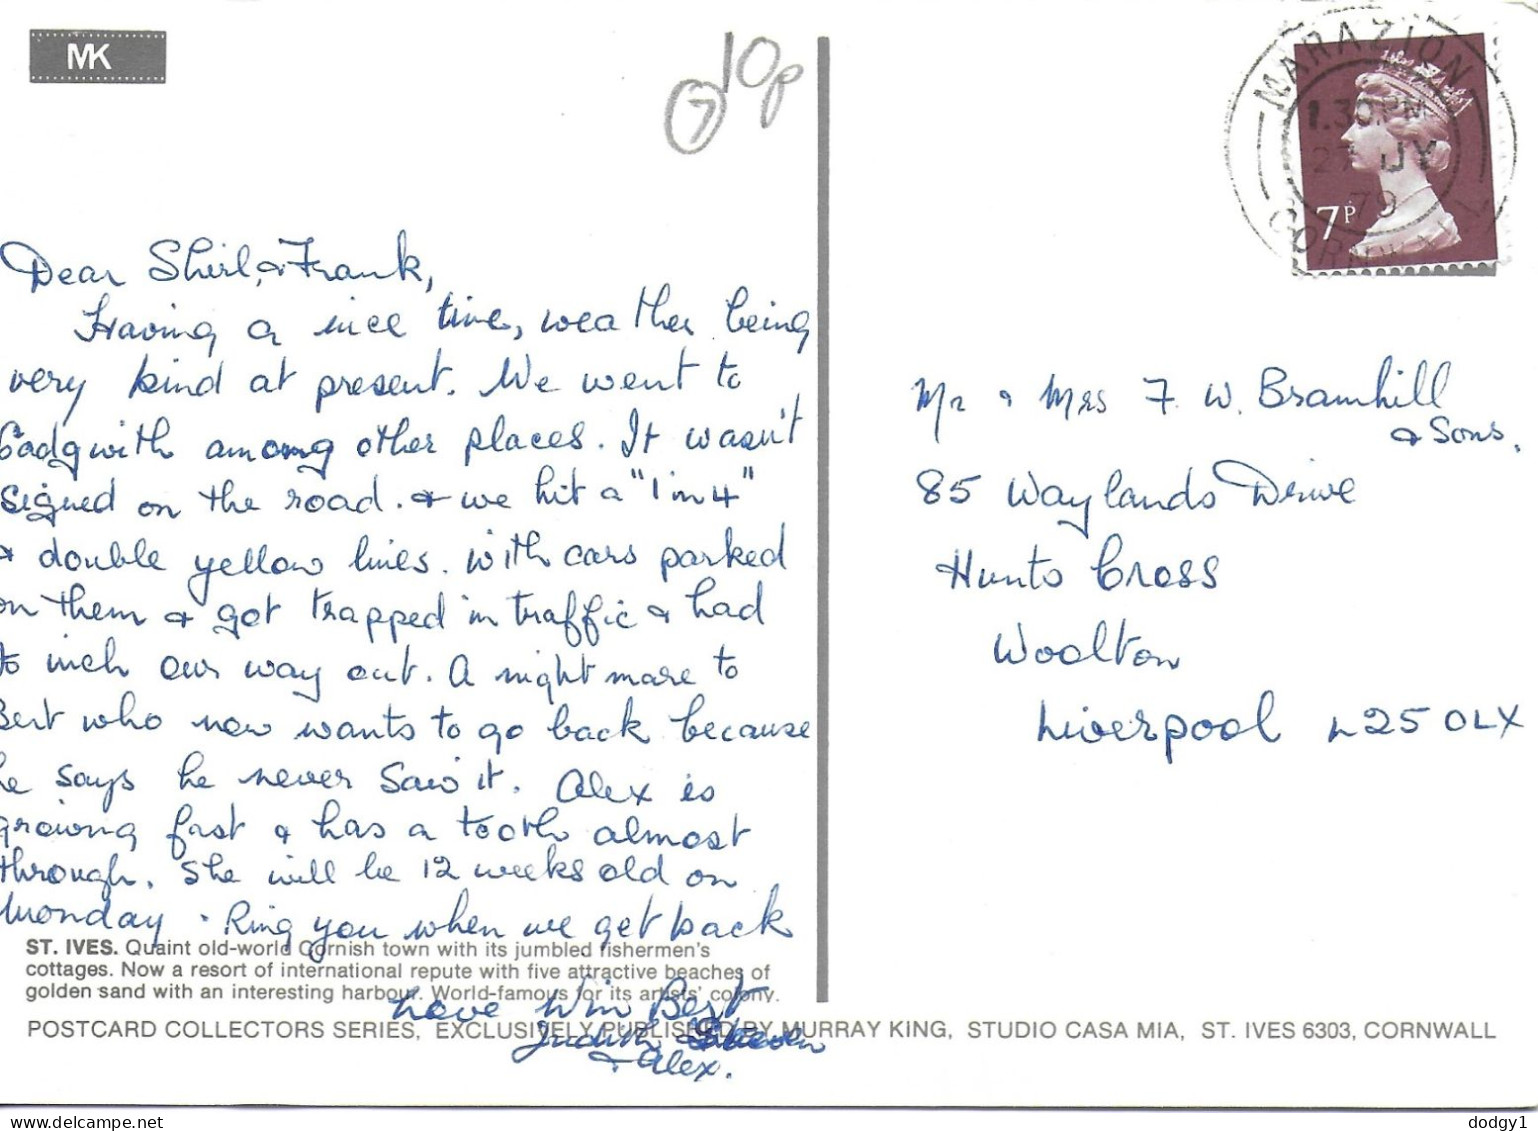 MK
7
10p
MARAZION
1.30 PM
27 JY
79
CORNWALL
7P
Dear Sheil, & Frank,
Having a nice time, weather being
very kind at present. We went to
Cadgwith among other places. It wasn't
signed on the road. & we hit a "1 in 4"
& double yellow lines. with cars parked
on them & got trapped in traffic & had
to inch our way out. A nightmare to
Bert who now wants to go back because
he says he never saw it. Alex is
growing fast & has a tooth almost
through. She will be 12 weeks old on
Monday. Ring you when we get back
Love Win Bert
Judith Steven
& Alex.
Mr & Mrs F. W. Bramhill
& Sons.
85 Waylands Drive
Hunts Cross
Woolton
Liverpool L25 0LX
ST. IVES. Quaint old-world Cornish town with its jumbled fishermen's
cottages. Now a resort of international repute with five attractive beaches of
golden sand with an interesting harbour. World-famous for its artists' colony.
POSTCARD COLLECTORS SERIES, EXCLUSIVELY PUBLISHED BY MURRAY KING, STUDIO CASA MIA, ST. IVES 6303, CORNWALL
dodgy1